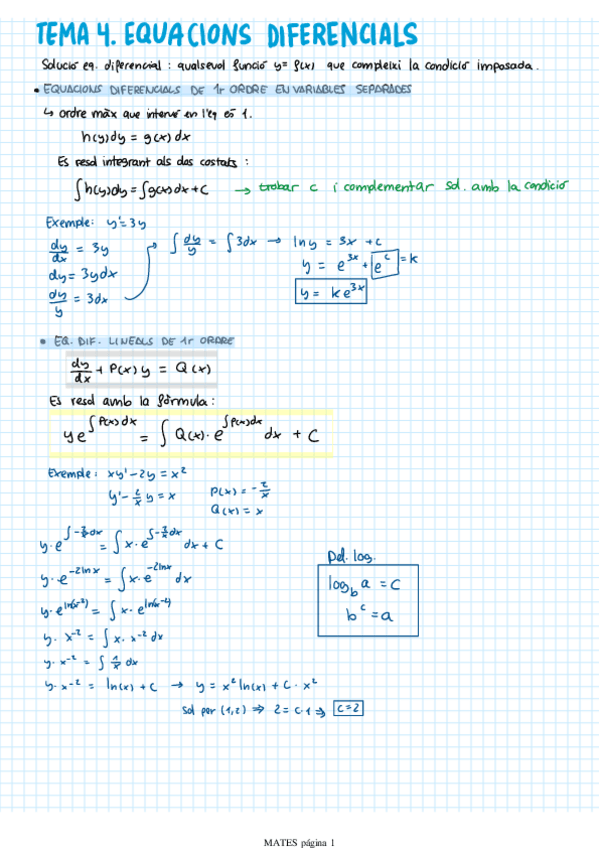 TEMA 4. EQUACIONS DIFERENCIALS
Solució eq. diferencial : qualsevol funció y= f(x) que compleixi la condició imposada.
• EQUACIONS DIFERENCIALS DE 1r ORDRE EN VARIABLES SEPARADES
↳ ordre màx que intervé en l'eq és 1.
h(y)dy = g(x) dx
Es resol integrant als dos costats :
∫h(y)dy = ∫g(x)dx + C → trobar c i complementar sol. amb la condició
Exemple: y'=3y
dy/dx = 3y
dy = 3ydx
dy/y = 3dx
∫ dy/y = ∫ 3dx → ln y = 3x + c
y = e^3x + e^c = k
y = k e^3x
• EQ. DIF. LINEALS DE 1r ORDRE
dy/dx + P(x) y = Q(x)
Es resol amb la fórmula:
y e^∫P(x)dx = ∫ Q(x) · e^∫P(x)dx dx + C
Exemple: xy' - 2y = x²
y' - 2/x y = x
P(x) = - 2/x
Q(x) = x
y · e^∫-2/x dx = ∫ x · e^∫-2/x dx dx + C
y · e^-2lnx = ∫ x · e^-2lnx dx
y · e^ln(x^-2) = ∫ x · e^ln(x^-2)
y · x^-2 = ∫ x · x^-2 dx
y · x^-2 = ∫ 1/x dx
y · x^-2 = ln(x) + C → y = x² ln(x) + C · x²
Sol per (1,2) ⇒ 2 = C · 1 ⇒ C=2
Def. log.
log_b a = C
b^c = a
MATES página 1